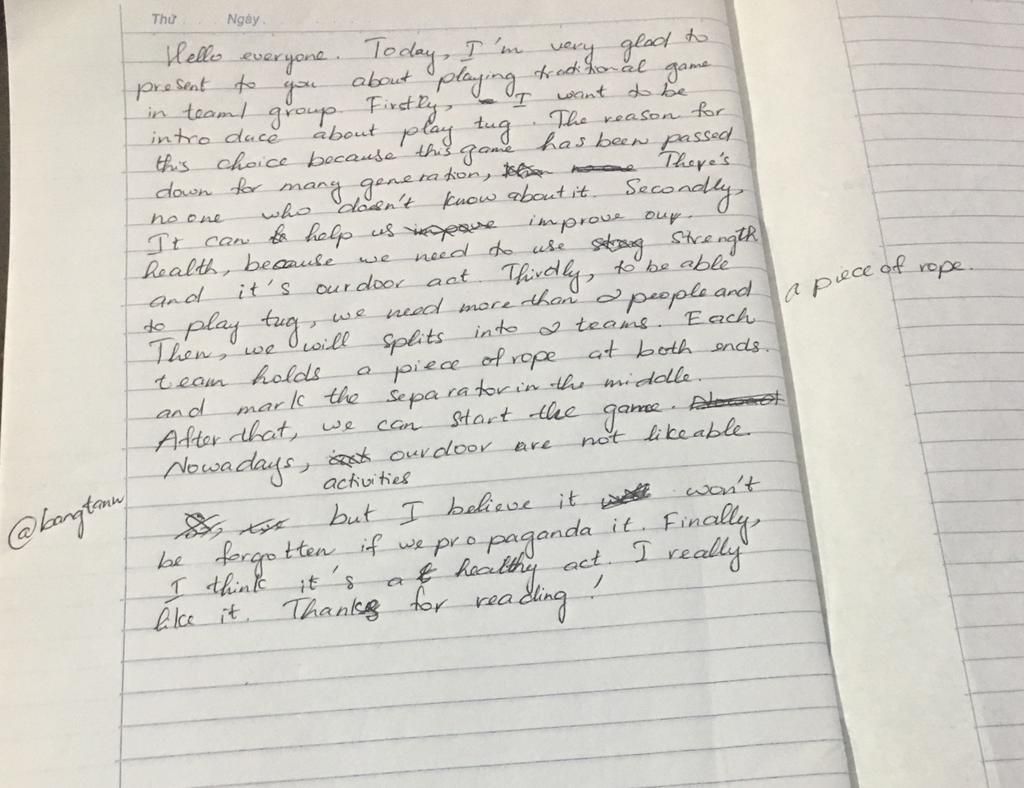 Thứ Ngày
Hello everyone. Today, I'm very glad to
present to you about playing traditional game
in team1 group. Firstly, I want to be
intro duce about play tug. The reason for
this choice because this game has been passed
down for many generation, There's
no one who doesn't know about it. Secondly,
It can help us improve our
health, because we need to use strength
and it's ourdoor act. Thirdly, to be able
to play tug, we need more than 2 people and
a piece of rope.
Then, we will splits into 2 teams. Each
team holds a piece of rope at both ends.
and mark the separator in the middle.
After that, we can start the game.
Nowadays, ourdoor are not likeable.
activities
@bangtanw
but I believe it won't
be forgotten if we propaganda it. Finally,
I think it's a healthy act. I really
like it. Thanks for reading!